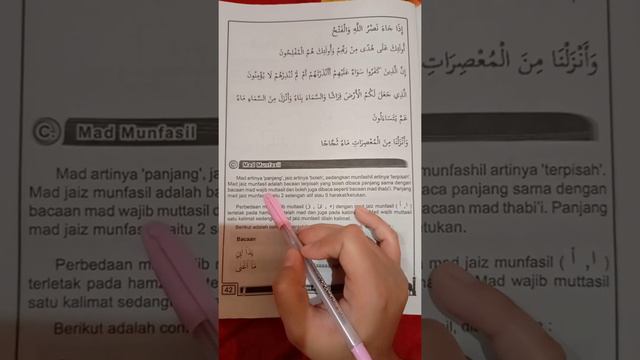 إِذَا جَاءَ نَصْرُ اللَّهِ وَالْفَتْحُ
أُولَئِكَ عَلَى هُدًى مِنْ رَبِّهِمْ وَأُولَئِكَ هُمُ الْمُفْلِحُونَ
إِنَّ الَّذِينَ كَفَرُوا سَوَاءٌ عَلَيْهِمْ أَأَنْذَرْتَهُمْ أَمْ لَمْ تُنْذِرْهُمْ لَا يُؤْمِنُونَ
الَّذِي جَعَلَ لَكُمُ الْأَرْضَ فِرَاشًا وَالسَّمَاءَ بِنَاءً وَأَنْزَلَ مِنَ السَّمَاءِ مَاءً
عَمَّ يَتَسَاءَلُونَ
وَأَنْزَلْنَا مِنَ الْمُعْصِرَاتِ مَاءً ثَجَّاجًا
C. Mad Munfasil
Mad artinya 'panjang', jaiz artinya 'boleh', sedangkan munfashil artinya 'terpisah'.
Mad jaiz munfasil adalah bacaan terpisah yang boleh dibaca panjang sama dengan
bacaan mad wajib muttasil dan boleh juga dibaca seperti bacaan mad thabi'i. Panjang
mad jaiz munfasil 2 setengah alif atau 5 harakat/ketukan.
Perbedaan muttasil dengan mad jaiz munfasil ( ا, أ )
terletak pada mad dan juga pada Mad wajib muttasil
satu kalimat sedangkan mad jaiz munfasil dilain kalimat.
Berikut adalah
Bacaan
42